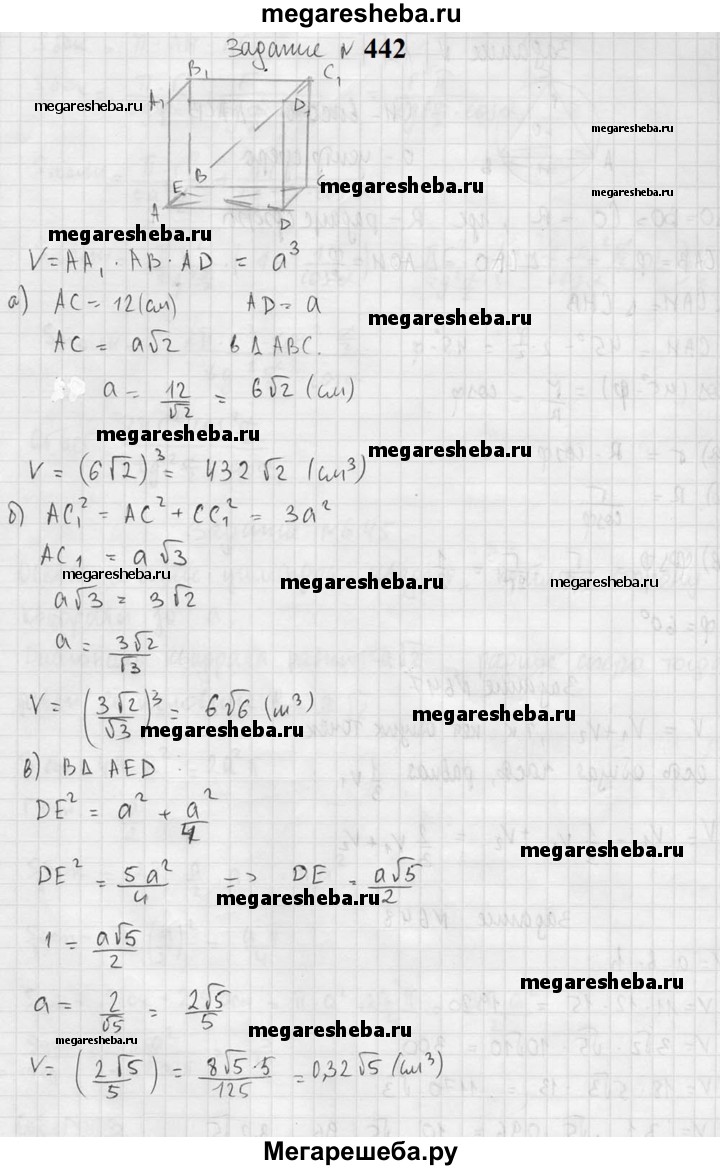 megaresheba.ru
Задание № 442
B₁ C₁
megaresheba.ru A₁ D₁
megaresheba.ru
E B megaresheba.ru
A D
megaresheba.ru
V = AA₁ · AB · AD = a³
а) AC = 12 (см) AD = a
megaresheba.ru
AC = a√2 в Δ ABC.
a = 12/√2 = 6√2 (см)
megaresheba.ru
megaresheba.ru
V = (6√2)³ = 432√2 (см³)
б) AC₁² = AC² + CC₁² = 3a²
AC₁ = a√3
megaresheba.ru megaresheba.ru megaresheba.ru
a√3 = 3√2
a = 3√2/√3
V = (3√2/√3)³ = 6√6 (м³)
megaresheba.ru
megaresheba.ru
в) В Δ AED
DE² = a² + a²/4
megaresheba.ru
DE² = 5a²/4 => DE = a√5/2
megaresheba.ru
1 = a√5/2
megaresheba.ru
a = 2/√5 = 2√5/5
megaresheba.ru
megaresheba.ru
V = (2√5/5) = 8√5·5/125 = 0,32√5 (см³)
Мегарешеба.ру